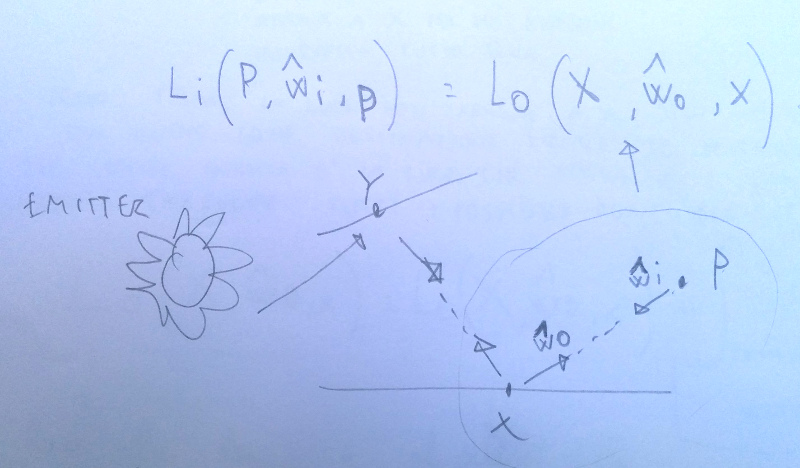 Li(P, ŵi, p) = Lo(X, ŵo, x)
EMITTER
Y
ŵi P
ŵo
X